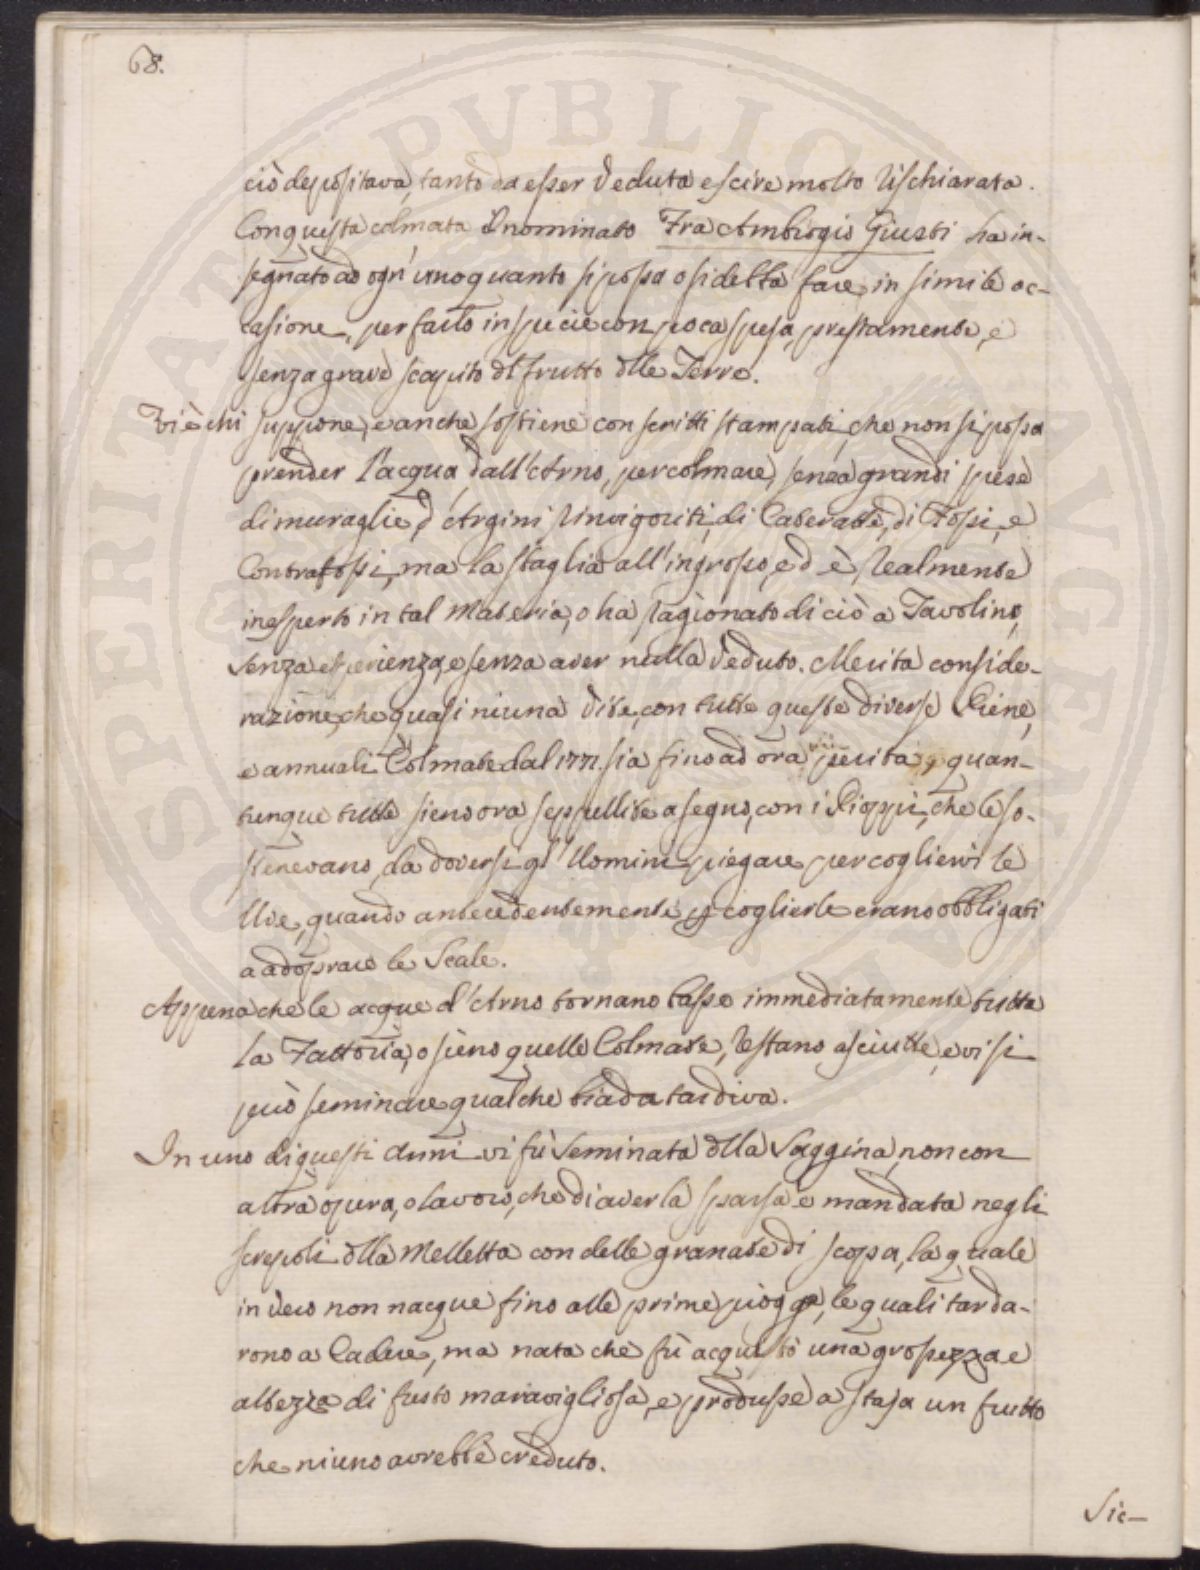 68.
ciò depositava, tanto da esser veduta escire molto rischiarata.
Con questa colmata il nominato Fra Ambrogio Giusti ha in-
segnato ad ogn'uno quanto si possa o si debba fare in simile oc-
casione, per farlo in specie con poca spesa, prestamente, e
senza grave scapito dl frutto dlle Terre.
Vi è chi suppone, e anche sostiene con scritti stampati, che non si possa
prender l'acqua dall'Arno, per colmare, senza grandi spese
di muraglie, d'Argini rinvigoriti, di Cateratte, di Fossi, e
Contrafossi, ma la sbaglia all'ingrosso, ed è realmente
inesperto in tal Materia, o ha ragionato di ciò a Tavolino,
senza esperienza, e senza aver nulla veduto. Merita conside-
razione, che quasi niuna Vite, con tutte queste diverse Piene,
e annuali Colmate dal 1771. sia fino ad ora perita, quan-
tunque tutte sieno ora seppellite a segno, con i Pioppi, che le so-
stenevano, da doversi gl'Uomini piegare per cogliervi le
Uve, quando antecedentemente p coglierle erano obbligati
a adoprare le Scale.
Appena che le acque d'Arno tornano basse immediatamente tutta
la Fattoria, o sieno quelle Colmate, restano asciutte, e vi si
può seminare qualche biada tardiva.
In uno di questi Anni vi fù seminata dlla Saggina, non con
altra opera, o lavoro, che di averla sparsa e mandata negli
screpoli dlla Melletta con delle granate di scopa, la quale
in vero non nacque fino alle prime piogge, le quali tarda-
rono a Cadere, ma nata che fù acquistò una grossezza e
altezza di fusto maravigliosa, e produsse a staja un frutto
che niuno avrebbe creduto.
Sic-
SPERITATE PUBLICA AUGENDA